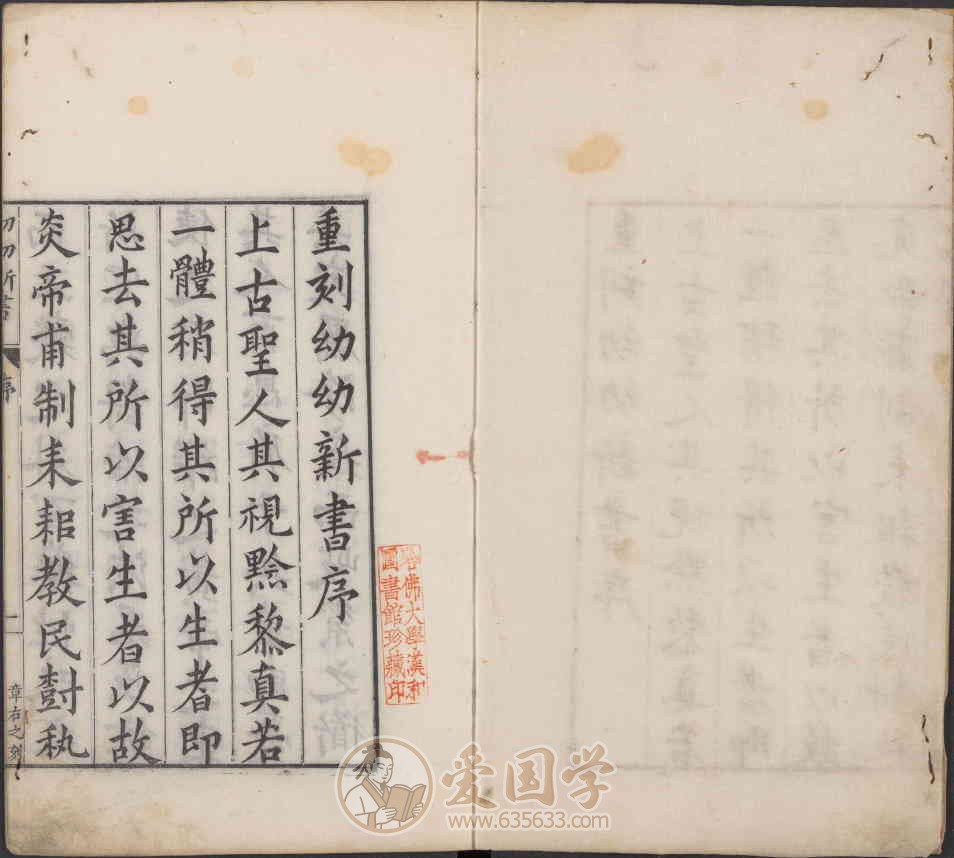 重刻幼幼新書序
上古聖人其視黔黎真若
一體稍得其所以生者即
思去其所以害生者以故
炎帝甫制耒耜教民對秇
幼幼新書
序
一
章右之刻
哈佛大學漢和
圖書館珍藏印
爱国学
www.635633.com